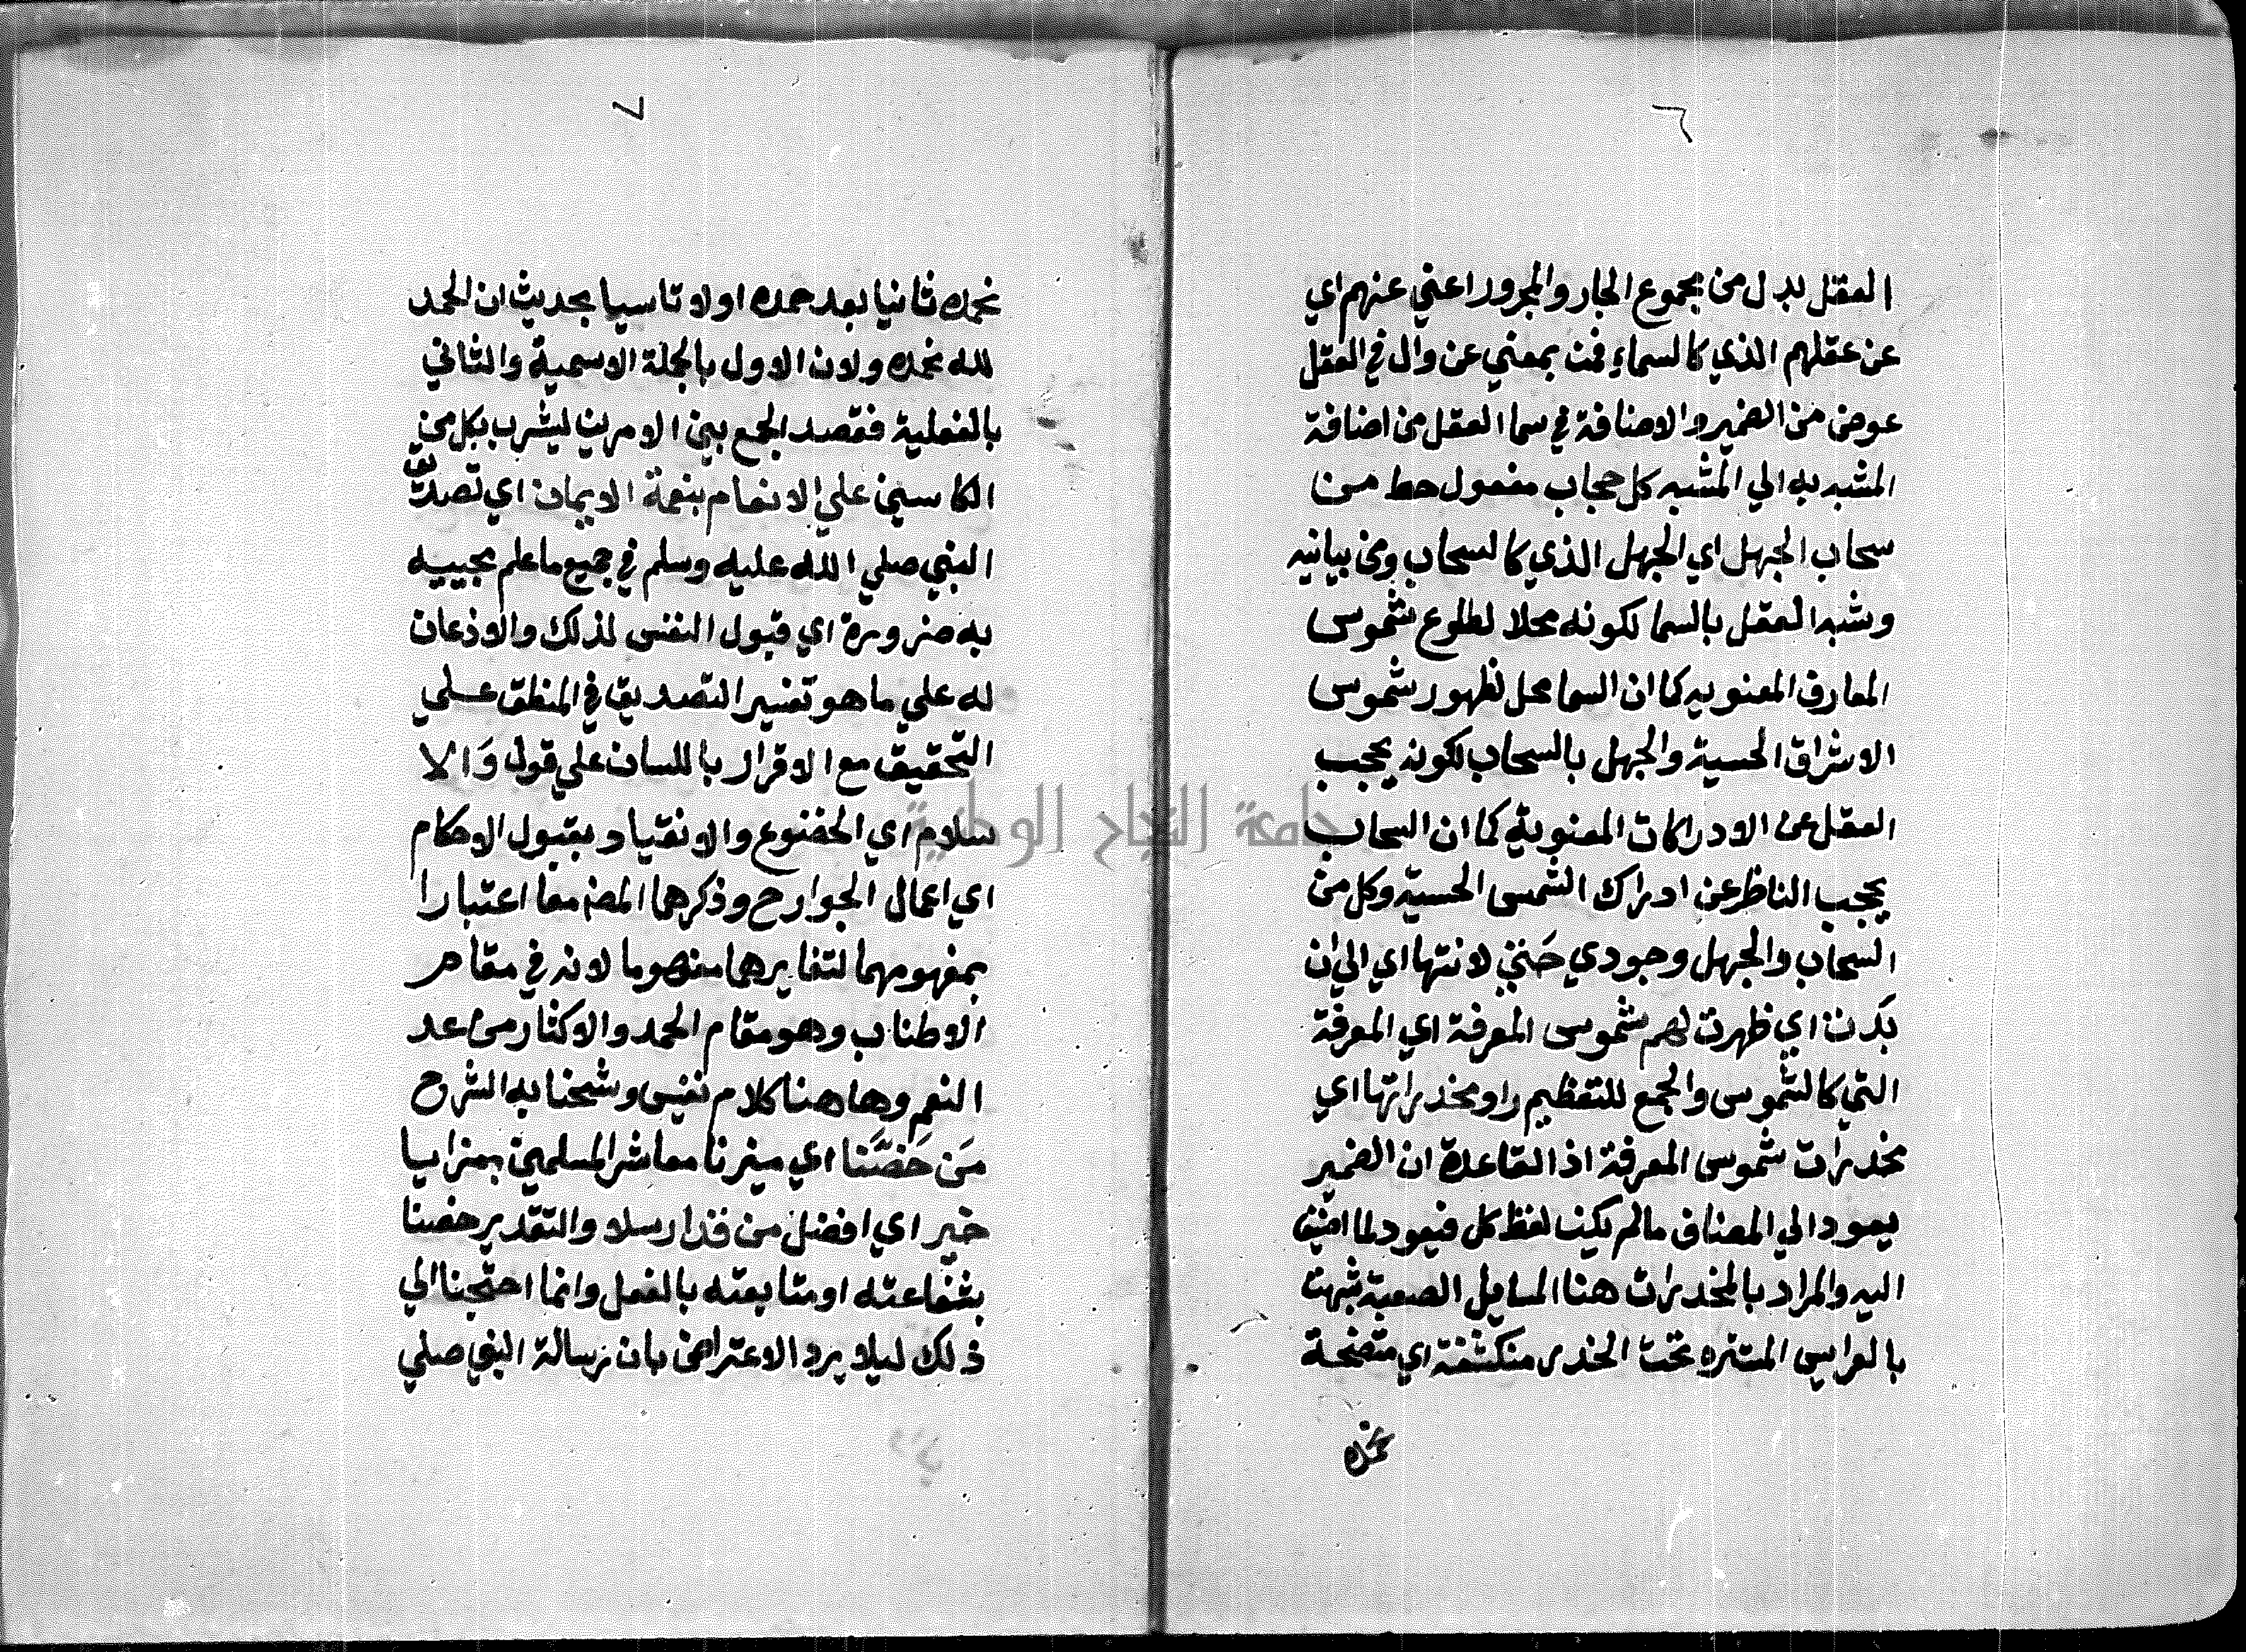 ٦
العقل بدل من مجموع الجار والمجرور اعني عنهم اي
عن عقلهم الذي كالسماء فمن بمعني عن وال في العقل
عوض من الضمير والاضافة في سما العقل من اضافة
المشبه به الي المشبه كل حجاب مفعول حط من
سحاب الجهل اي الجهل الذي كالسحاب ومن بيانيه
وشبه العقل بالسما لكونه محلا لطلوع شموس
المعارف المعنويه كما ان السما محل لظهور شموس
الاشراق الحسية والجهل بالسحاب لكونه يحجب
العقل عن الادراكات المعنوية كما ان السحاب
يحجب الناظر عن ادراك الشمس الحسية وكل من
السحاب والجهل وجودي حَتي لانتها اي الي ان
بَدَت اي ظهرت لهم شموس المعرفة اي المعرفة
التي كالشموس والجمع للتعظيم راو مخدراتها اي
مخدرات شموس المعرفة اذ القاعدة ان الضمير
يعود الي المضاف مالم يكن لفظ كل فيعود لما اضيف
اليه والمراد بالمخدرات هنا المسايل الصعبة شبهت
بالعرايس المستتره تحت الخدر منكشفة اي متضحة
نحمده
٧
نحمده ثانيا بعد حمده اولا تاسيا بحديث ان الحمد
لله نحمده ولان الاول بالجملة الاسمية والثاني
بالفعلية فقصد الجمع بين الامرين ليشرب بكل من
الكاسين علي الانعام بنعمة الايمان اي تصديق
النبي صلي الله عليه وسلم في جميع ما علم مجييه
به ضرورة اي قبول النفس لذلك والاذعان
له علي ما هو تفسير التصديق في المنطق علي
التحقيق مع الاقرار باللسان علي قول وَالا
سلام اي الخضوع والانقياد بقبول الاحكام
اي اعمال الجوارح وذكرهما المصنف معا اعتبارا
بمفهومهما لتغايرهما مفهوما لانه في مقام
الاطناب وهو مقام الحمد والاكثار من عد
النعم وهاهنا كلام نفيس وشحنا به الشرح
مَن خَصَّنا اي ميزنا معاشر المسلمين بمزايا
خير اي افضل من قد ارسلا والتقدير خصنا
بشفاعته او متابعته بالفعل وانما احتجنا الي
ذلك ليلا يرد الاعتراض بان رسالة النبي صلي
جامعة النجاح الوطنية